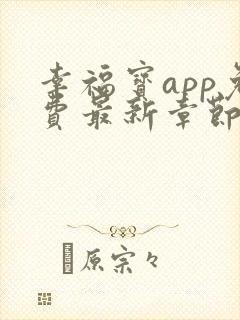 幸福宝app免
费最新章节
原宗々